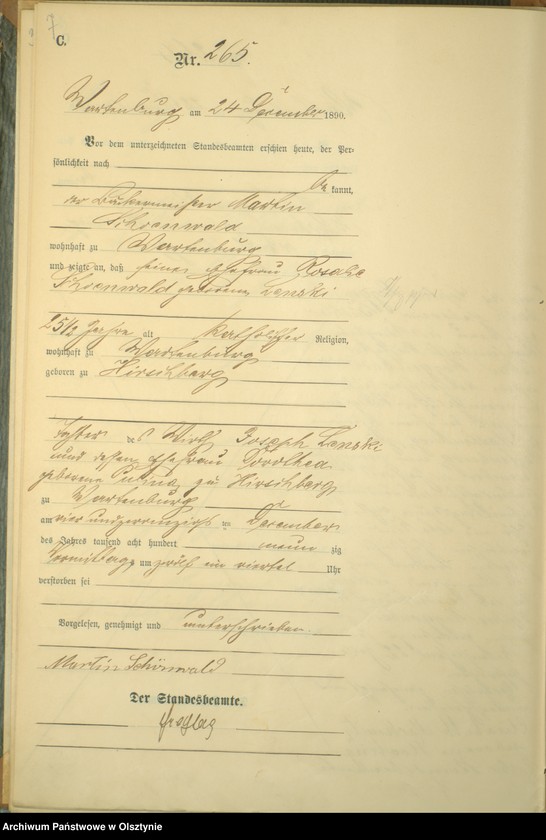 7
C.
Nr. 265.
Wartenburg am 24 December 1890.
Vor dem unterzeichneten Standesbeamten erschien heute, der Per-
sönlichkeit nach
be kannt,
der Bäckermeister Martin
Schoenwald
wohnhaft zu Wartenburg
und zeigte an, daß seine Ehefrau Rosalie
Schoenwald geborene Lenski
25 1/2 Jahre alt katholischer Religion,
wohnhaft zu Wartenburg
geboren zu Hirschberg
Tochter des Wirth Joseph Lenski
und dessen Ehefrau Dorothea
geborene zu Hirschberg
zu Wartenburg
am vier und zwanzigsten December
des Jahres tausend acht hundert neun zig
Vormittags um zwölf ein viertel Uhr
verstorben sei
Vorgelesen, genehmigt und unterschrieben
Martin Schönwald
Der Standesbeamte.
Archiwum Państwowe w Olsztynie